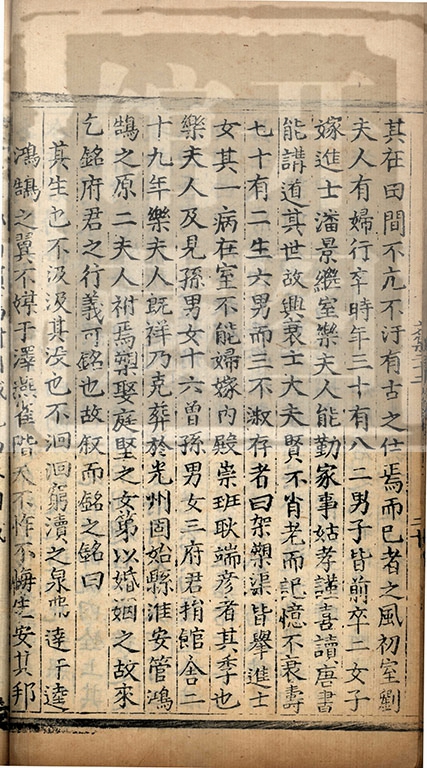 其在田間不亢不汙有古之仕焉而已者之風初室劉
夫人有婦行卒時年三十有八二男子皆前卒二女子
嫁進士潘景繼室樂夫人能勤家事姑孝謹喜讀唐書
能講道其世故興衰士大夫賢不肖老而記憶不衰壽
七十有二生六男而三不淑存者曰架槊渠皆舉進士
女其一病在室不能婦嫁內殿崇班耿端彥者其季也
樂夫人及見孫男女十六曾孫男女三府君捐館舍二
十九年樂夫人旣祥乃克葬於光州固始縣淮安管鴻
鵠之原二夫人祔焉槊娶庭堅之女弟以婚姻之故來
乞銘府君之行義可銘也故叙而銘之銘曰
其生也不汲汲其没也不洄洄窮瀆之泉達于逵
鴻鵠之翼不媒于澤燕雀階天不怍不悔生安其邦